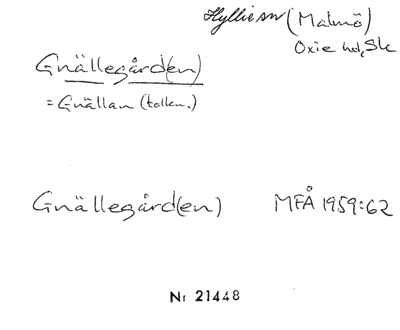 Hyllie sn (Malmö)
Oxie hd, Sk
Gnällegård(en)
= Gnällan (tolkn.)
Gnällegård(en) MFÅ 1959:62
Nr 21448